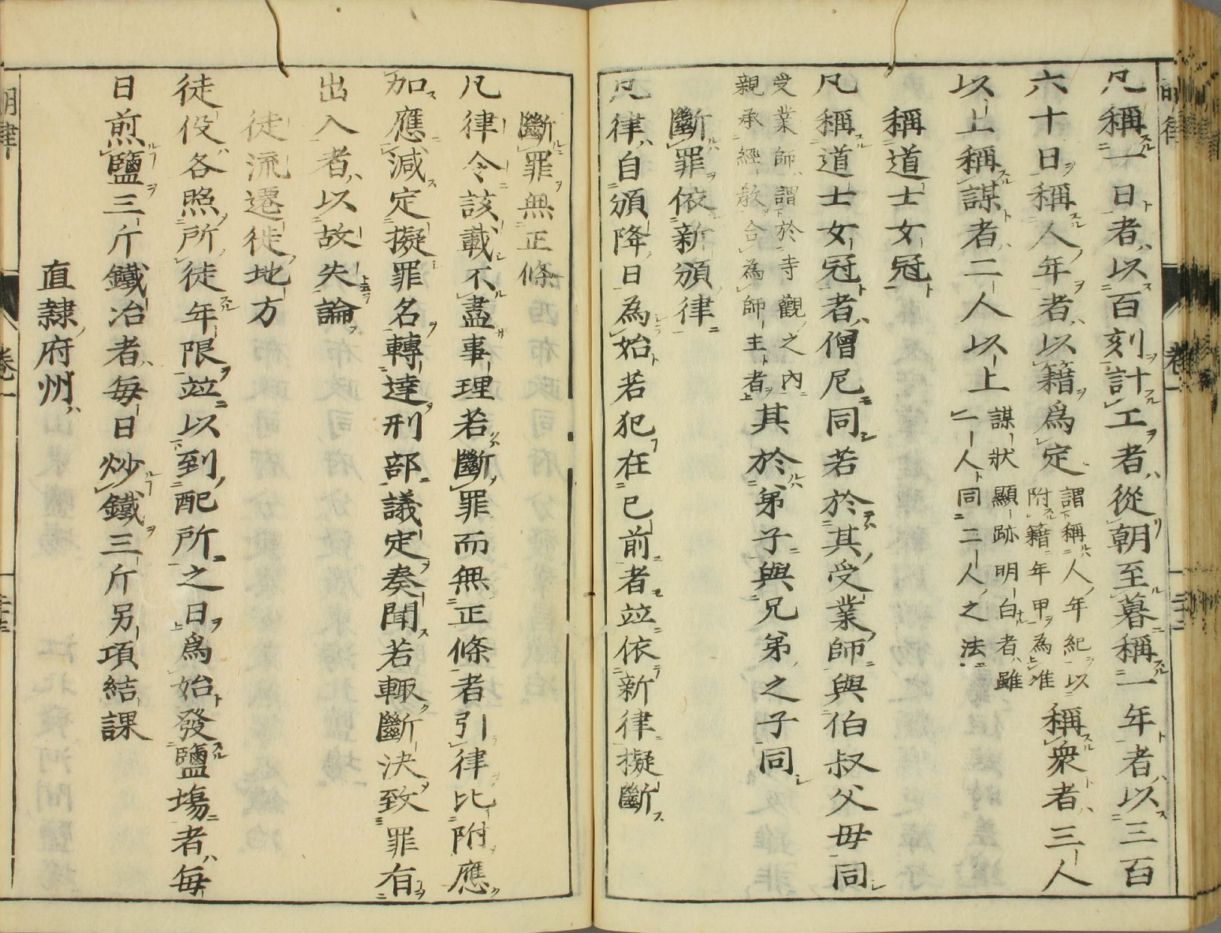 凡稱一日者以百刻計工者從朝至暮稱一年者以三百
六十日稱人年者以籍爲定謂稱人年紀以附籍年甲爲准稱衆者三人
以上稱謀者二人以上謀狀顯跡明白者雖一人同二人之法
稱道士女冠
凡稱道士女冠者僧尼同若於其受業師與伯叔父母同
受業師謂於寺觀之内親承經教合為師主者其於弟子與兄弟之子同
斷罪依新頒律
凡律自頒降日為始若犯在已前者竝依新律擬斷
斷罪無正條
凡律令該載不盡事理若斷罪而無正條者引律比附應
加應減定擬罪名轉達刑部議定奏聞若輒斷決致罪有
出入者以故失論
徒流遷徙地方
徒役各照所徒年限竝以到配所之日爲始發鹽塲者每
日煎鹽三斤鐵冶者毎日炒鐵三斤另項結課
直隷府州
卷一